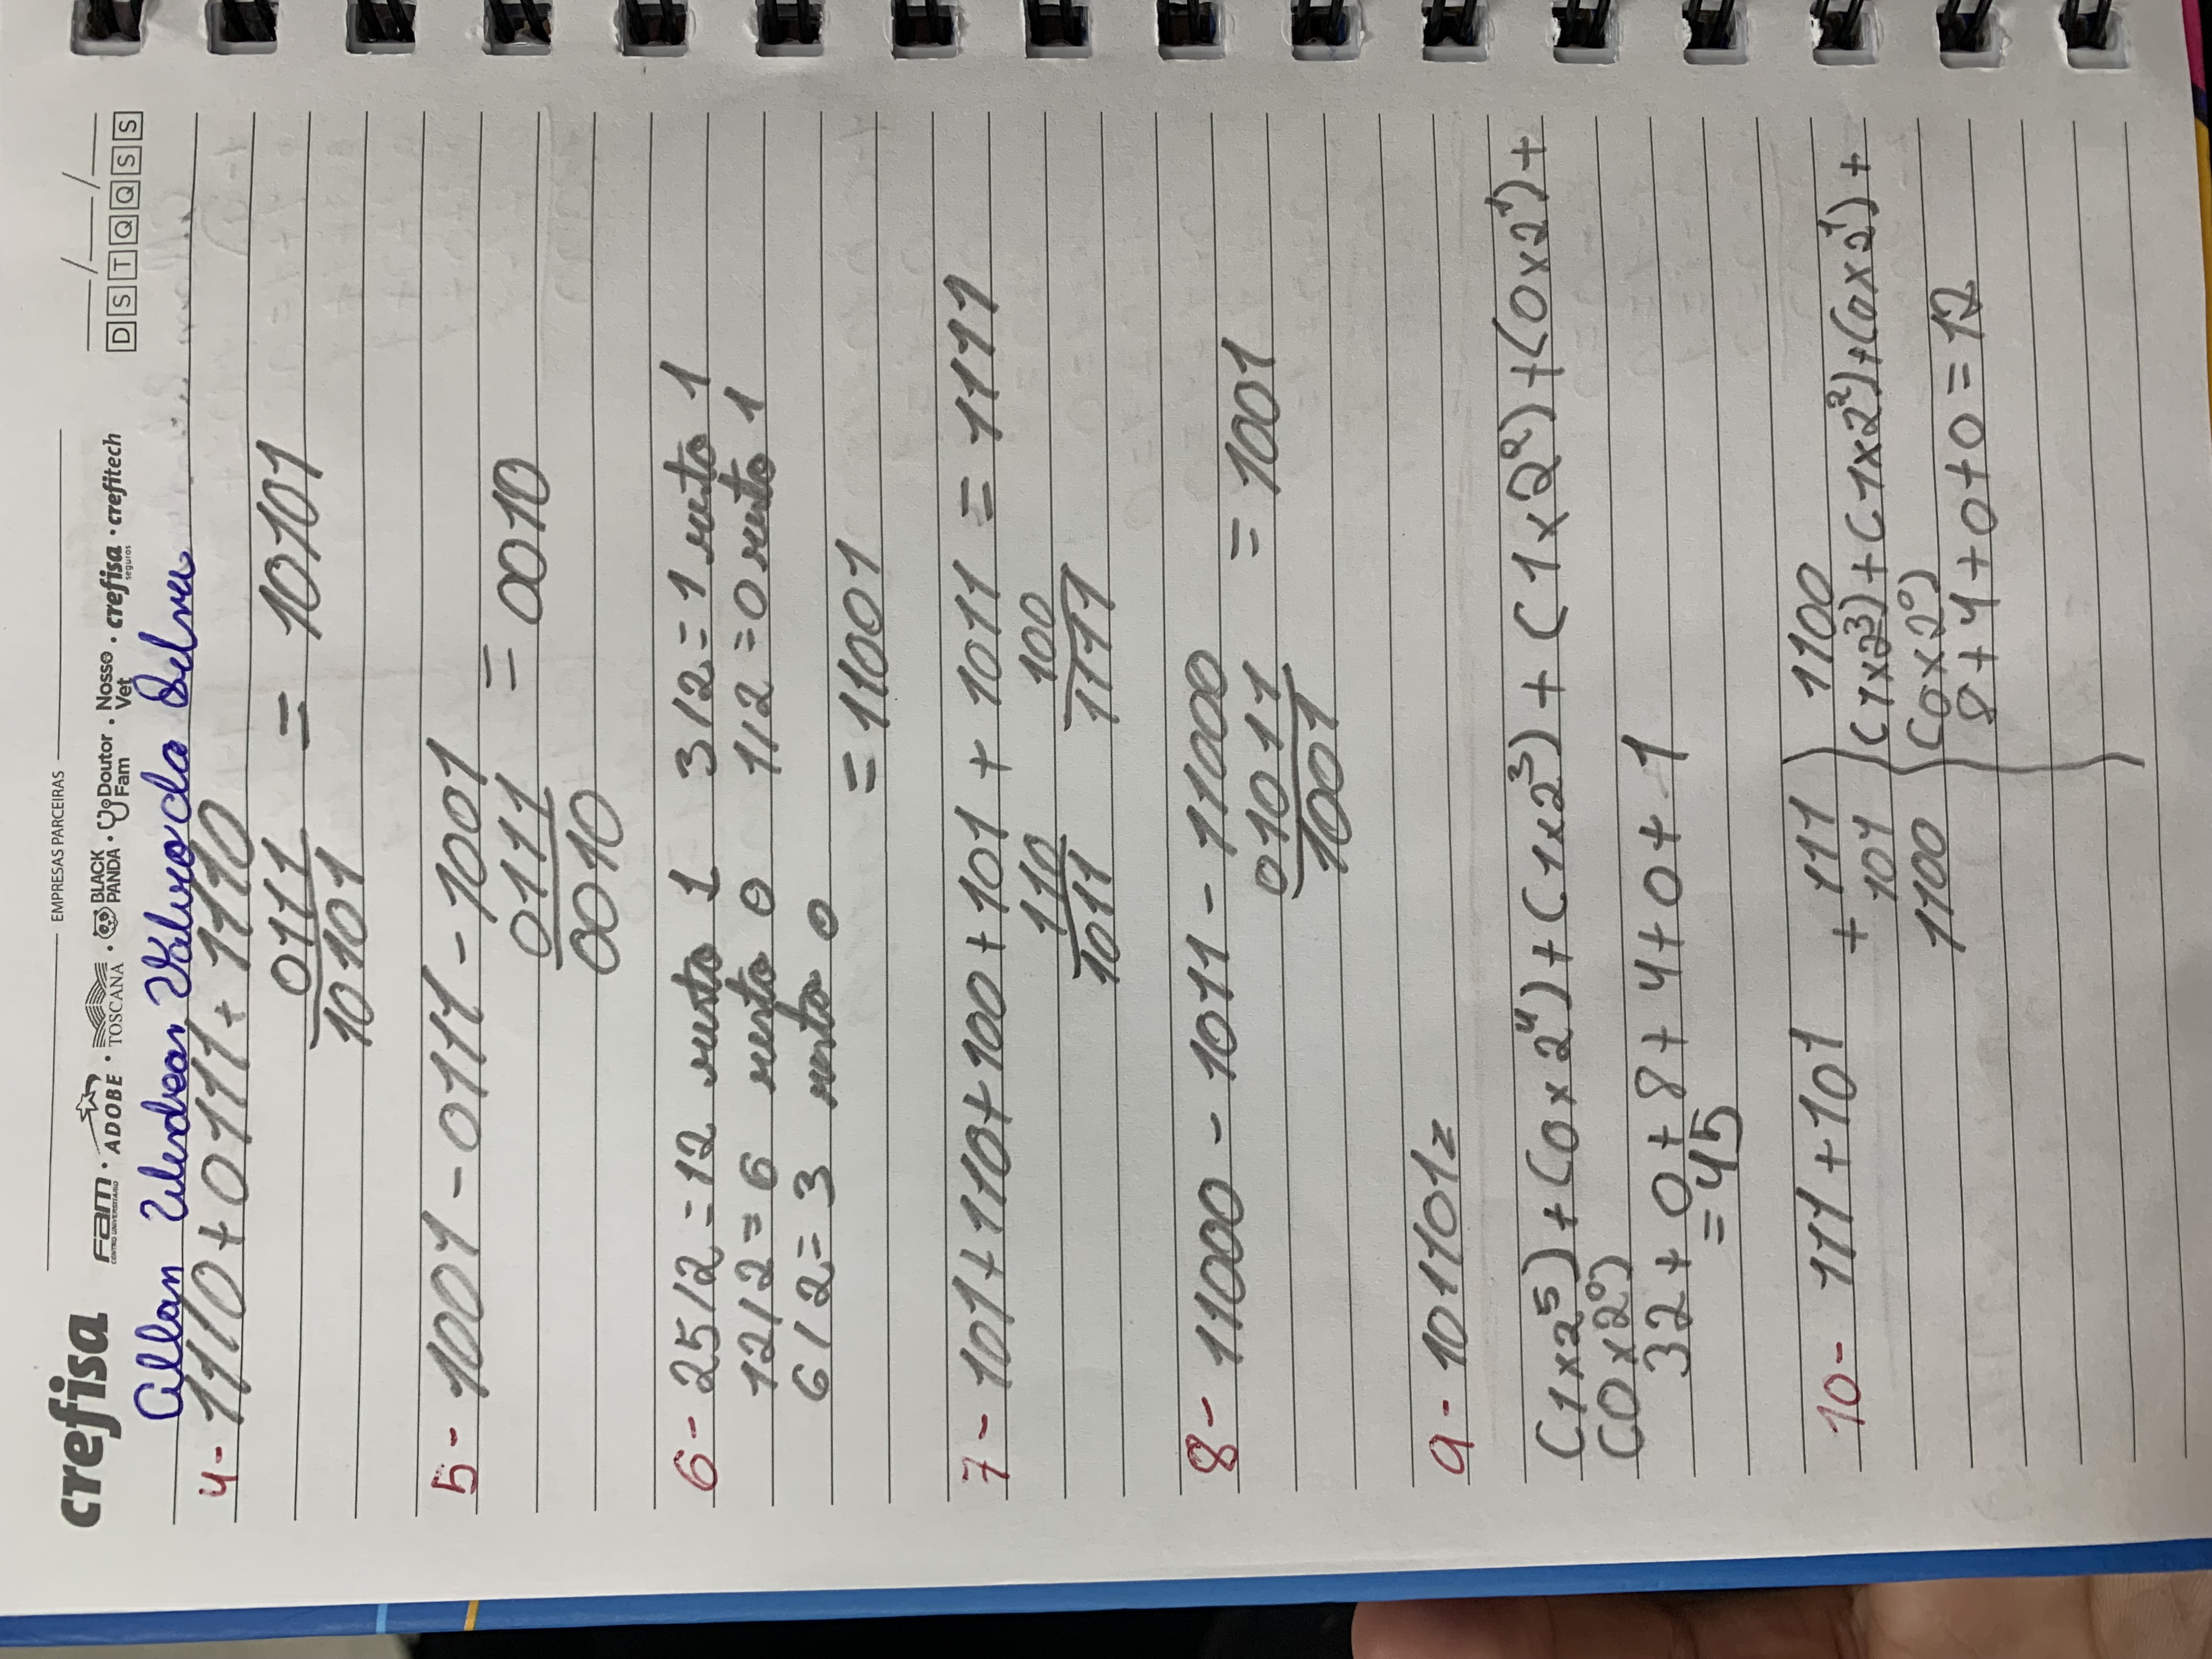 crefisa
EMPRESAS PARCEIRAS
Fam CENTRO UNIVERSITÁRIO · ADOBE · TOSCANA · BLACK PANDA · Doutor Fam · Nosso Vet · crefisa seguros · crefitech
__/__/__
D S T Q Q S S
Allan da Silva
4- 1110 + 0111 + 1110
0111 = 10101
10101
5- 1001 - 0111 - 1001
0111 = 0010
0010
6- 25/2 = 12 resto 1 3/2 = 1 resto 1
12/2 = 6 resto 0 1/2 = 0 resto 1
6/2 = 3 resto 0
= 11001
7- 101 + 110 + 100 + 101 + 1011 = 1111
110 100
1011 1111
8- 11000 - 1011 - 11000
01011 = 1001
1001
9- 101101₂
(1x2⁵) + (0x2⁴) + (1x2³) + (1x2²) + (0x2¹) +
(0x2⁰)
32 + 0 + 8 + 4 + 0 + 1
= 45
10- 111 + 101 + 111 1100
101 (1x2³) + (1x2²) + (0x2¹) +
1100 (0x2⁰)
8 + 4 + 0 + 0 = 12